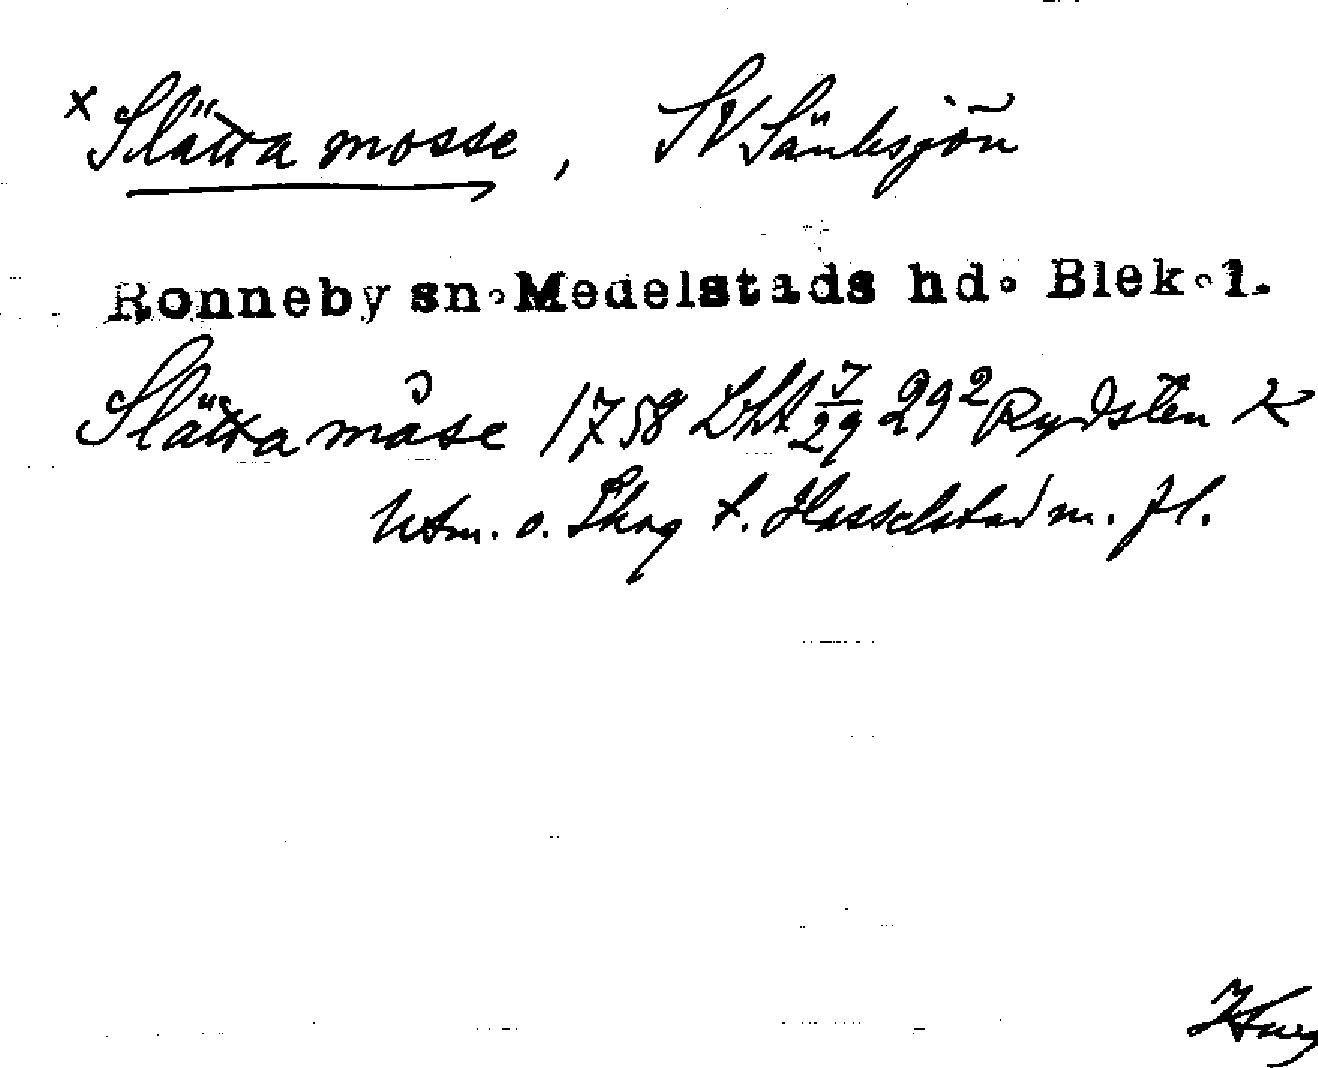 x Slätta mosse, SV Sänksjön
Ronneby sn. Medelstads hd. Blek. l.
Slätta måse 1758 Lht 7/29 29² Rydsten K
Utm. o. Skog t. Hasselstad m. fl.